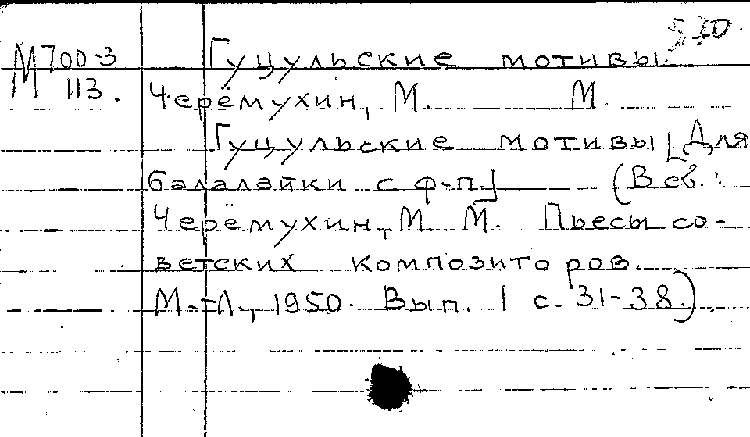 М 700-3
113.
Гуцульские мотивы.
Черёмухин, М. М.
Гуцульские мотивы [Для
балалайки с ф-п.] (В сб.:
Черёмухин, М. М. Пьесы со-
ветских композиторов.
М.-Л., 1950. Вып. 1 с. 31-38.)